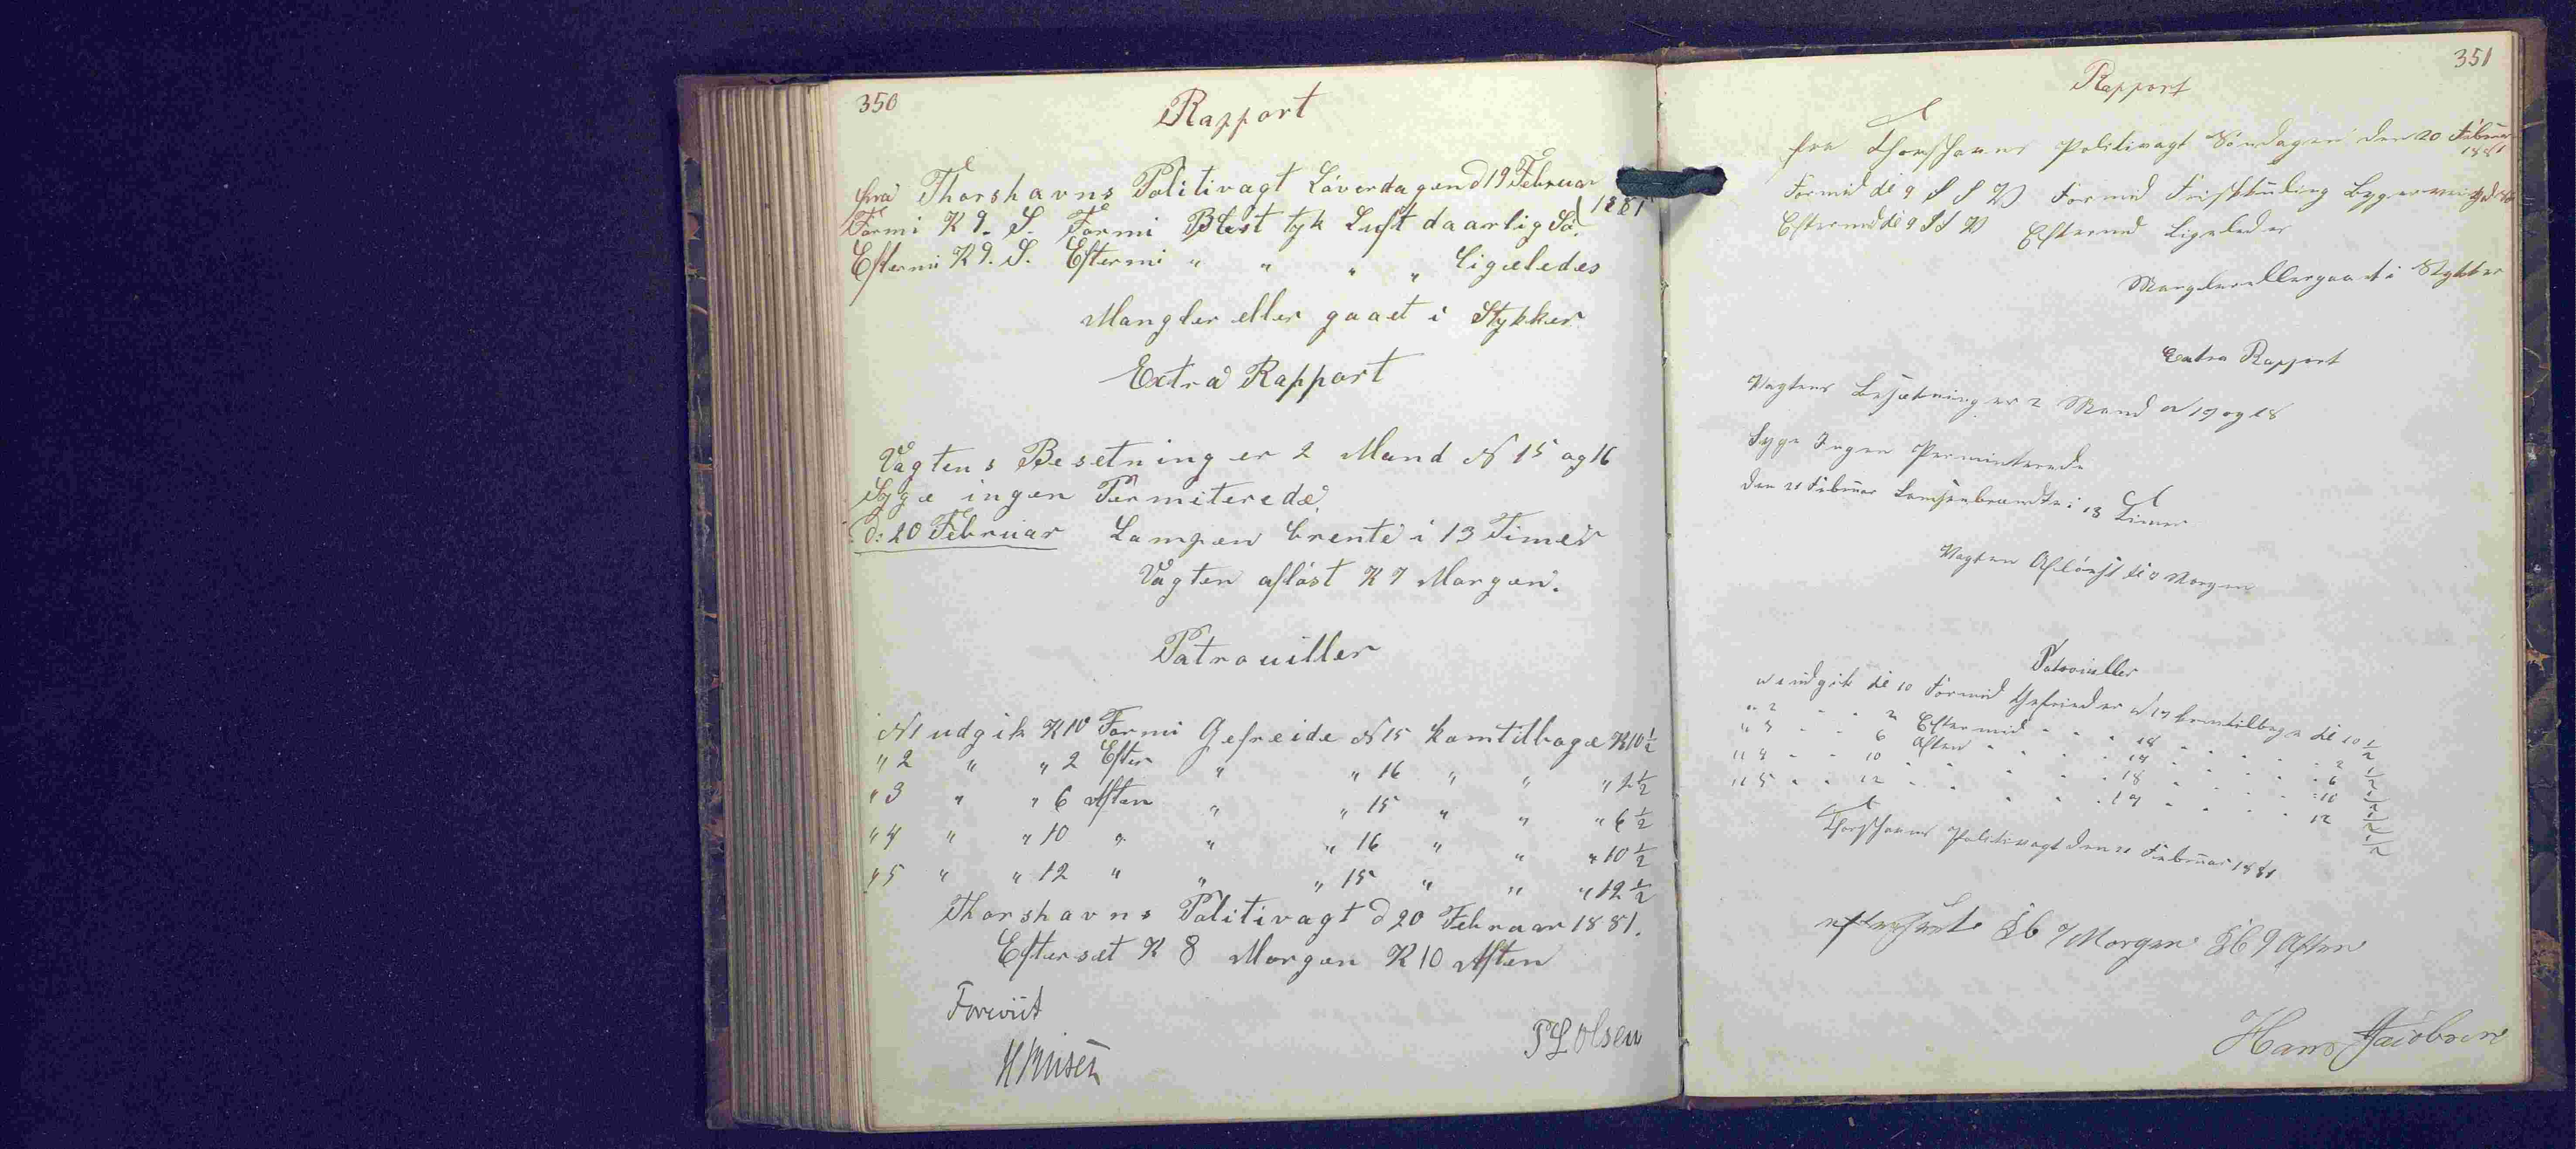 350
Rapport
fra Thorshavns Politivagt Löverdagen d 19 Februar
1881
Formi K 9. S. Formi Blest tyk Luft daarlig Sö.
Eftermi K 9. S. Eftermi " " " " Ligeledes
Mangler eller gaaet i Stykker
Extra Rapport
Vagtens Besetning er 2 Mand N 15 og 16
Syge ingen Permiterede.
d: 20 Februar Lampen brente i 13 Timer
Vagten aflöst K 7 Morgen.
Patrouiller
N 1 udgik K 10 Formi Gefreide N 15 kom tilbage K 10 1/2
" 2 " " 2 Efter " " 16 " " " 2 1/2
" 3 " " 6 Aften " " 15 " " " 6 1/2
" 4 " " 10 " " " 16 " " " 10 1/2
" 5 " " 12 " " " 15 " " " 12 1/2
Thorshavns Politivagt d 20 Februar 1881.
Efterset K 8 Morgen K 10 Aften
Foreviist
P L Olsen
351
Rapport
fra Thorshavns Politivagt Söndagen den 20 Februar
1881
Formid Kl 9 S S W Formid Friskkuling
Eftermid Kl 9 S S W Eftermid Ligeledes
Mangler eller gaaet i Stykker
Extra Rapport
Vagtens Besætning er 2 Mand N 17 og 18
Syge Ingen Permiterede
den 21 Februar Lampen brændte i 13 Timer
Vagten Aflöst Kl Morgen
Patrouiller
N 1 udgik Kl 10 Formid Gefreider N 17 kom tilbage Kl 10 1/2
" 2 " " 2 Eftermid " " " 18 " " " " 2 1/2
" 3 " " 6 Aften " " " 17 " " " " 6 1/2
" 4 " " 10 " " " " 18 " " " " 10 1/2
" 5 " " 12 " " " " 17 " " " " 12 1/2
Thorshavns Politivagt den 21 Februar 1881
Morgen 9 Aften
Hans Jacobsen